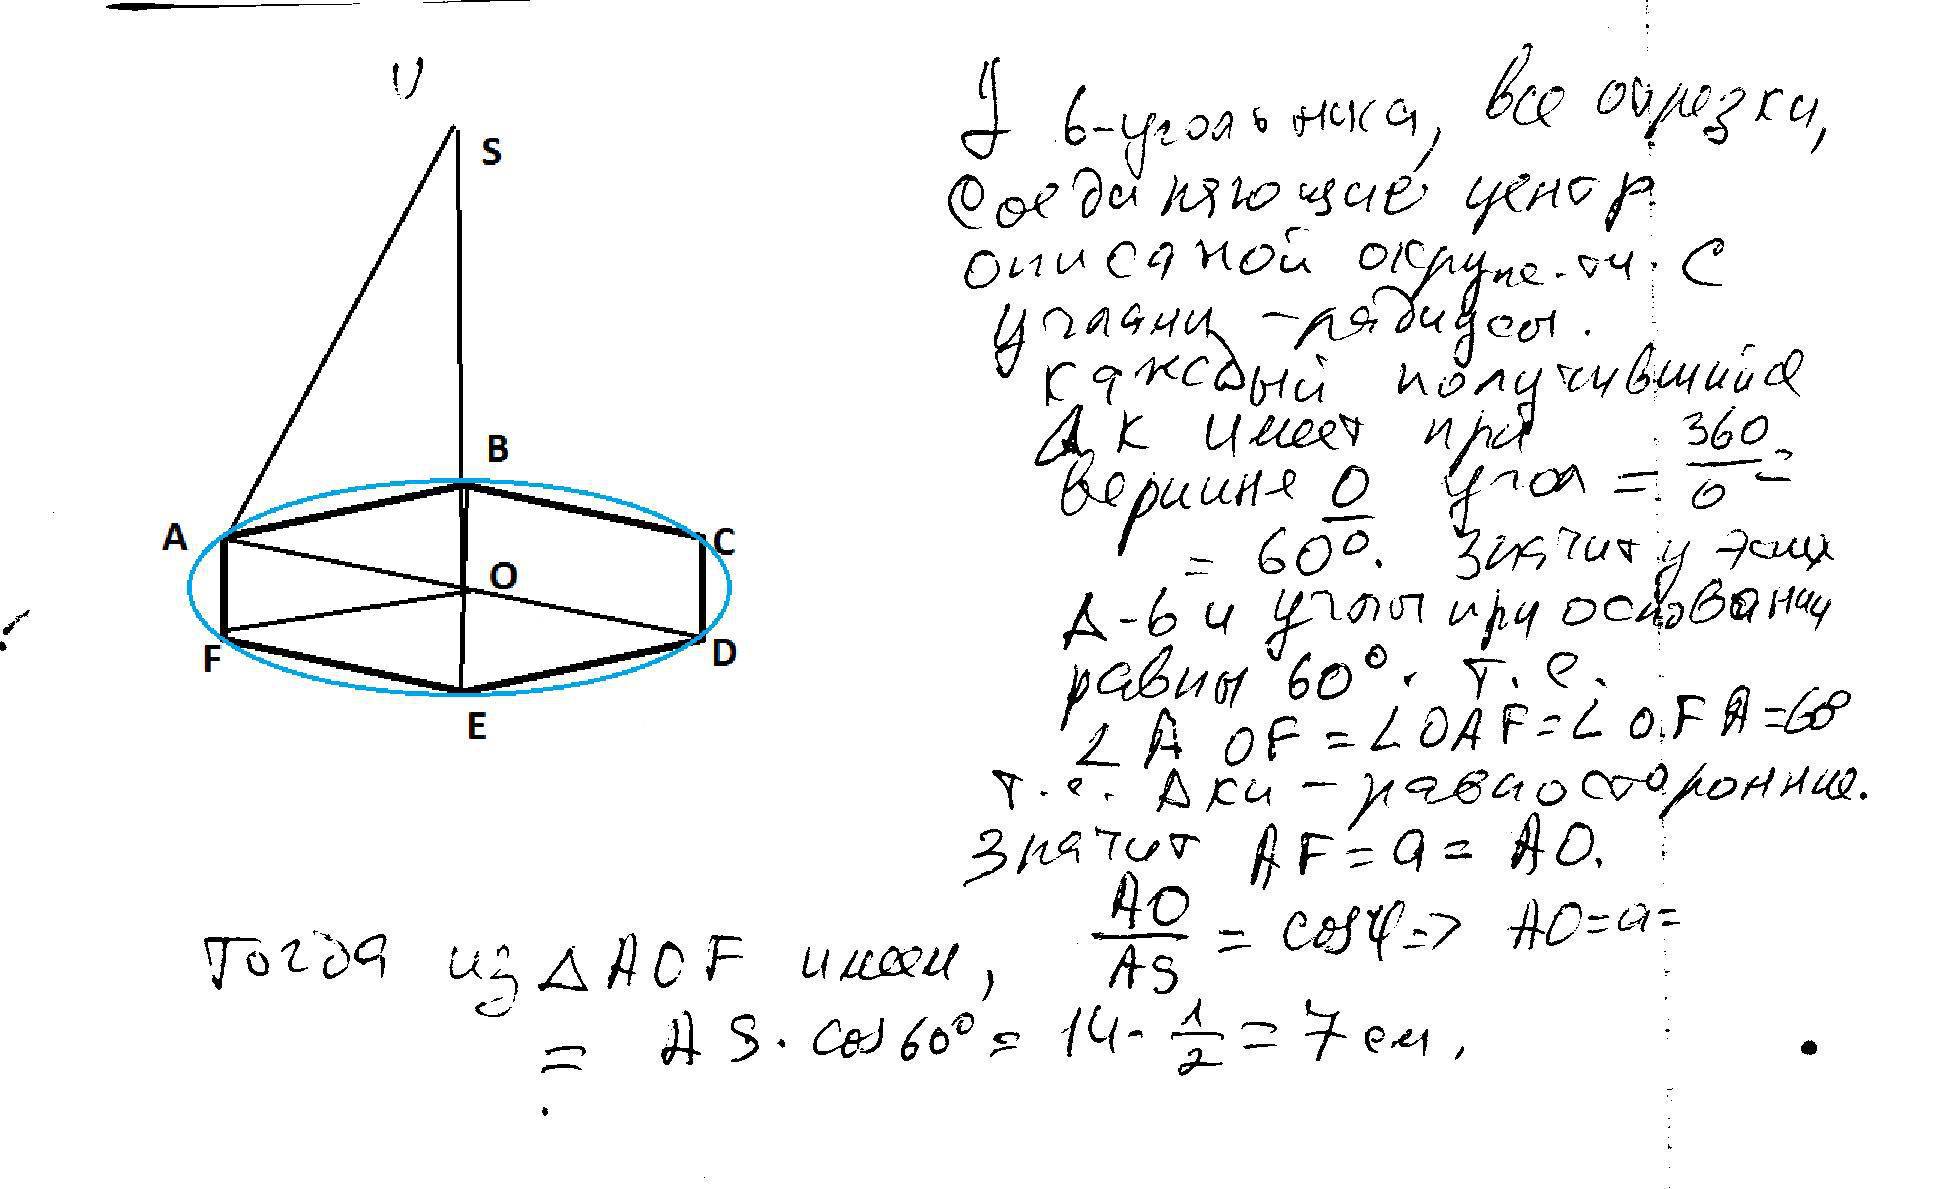 S
B
A
C
O
F
D
E
У 6-угольника, все отрезки,
соединяющие центр
описаной окруж-ти с
углами - радиусы.
каждый получившийся
Δк имеет при
вершине O угол = 360/6 =
= 60°. Значит у этих
Δ-в и углы при основании
равны 60°. т.е.
∠AOF = ∠OAF = ∠OFA = 60°
т.е. Δки - равносторонние.
Значит AF = a = AO.
Тогда из ΔAOF имеем, AO/AS = cos φ => AO = a =
= AS · cos 60° = 14 · 1/2 = 7 см.